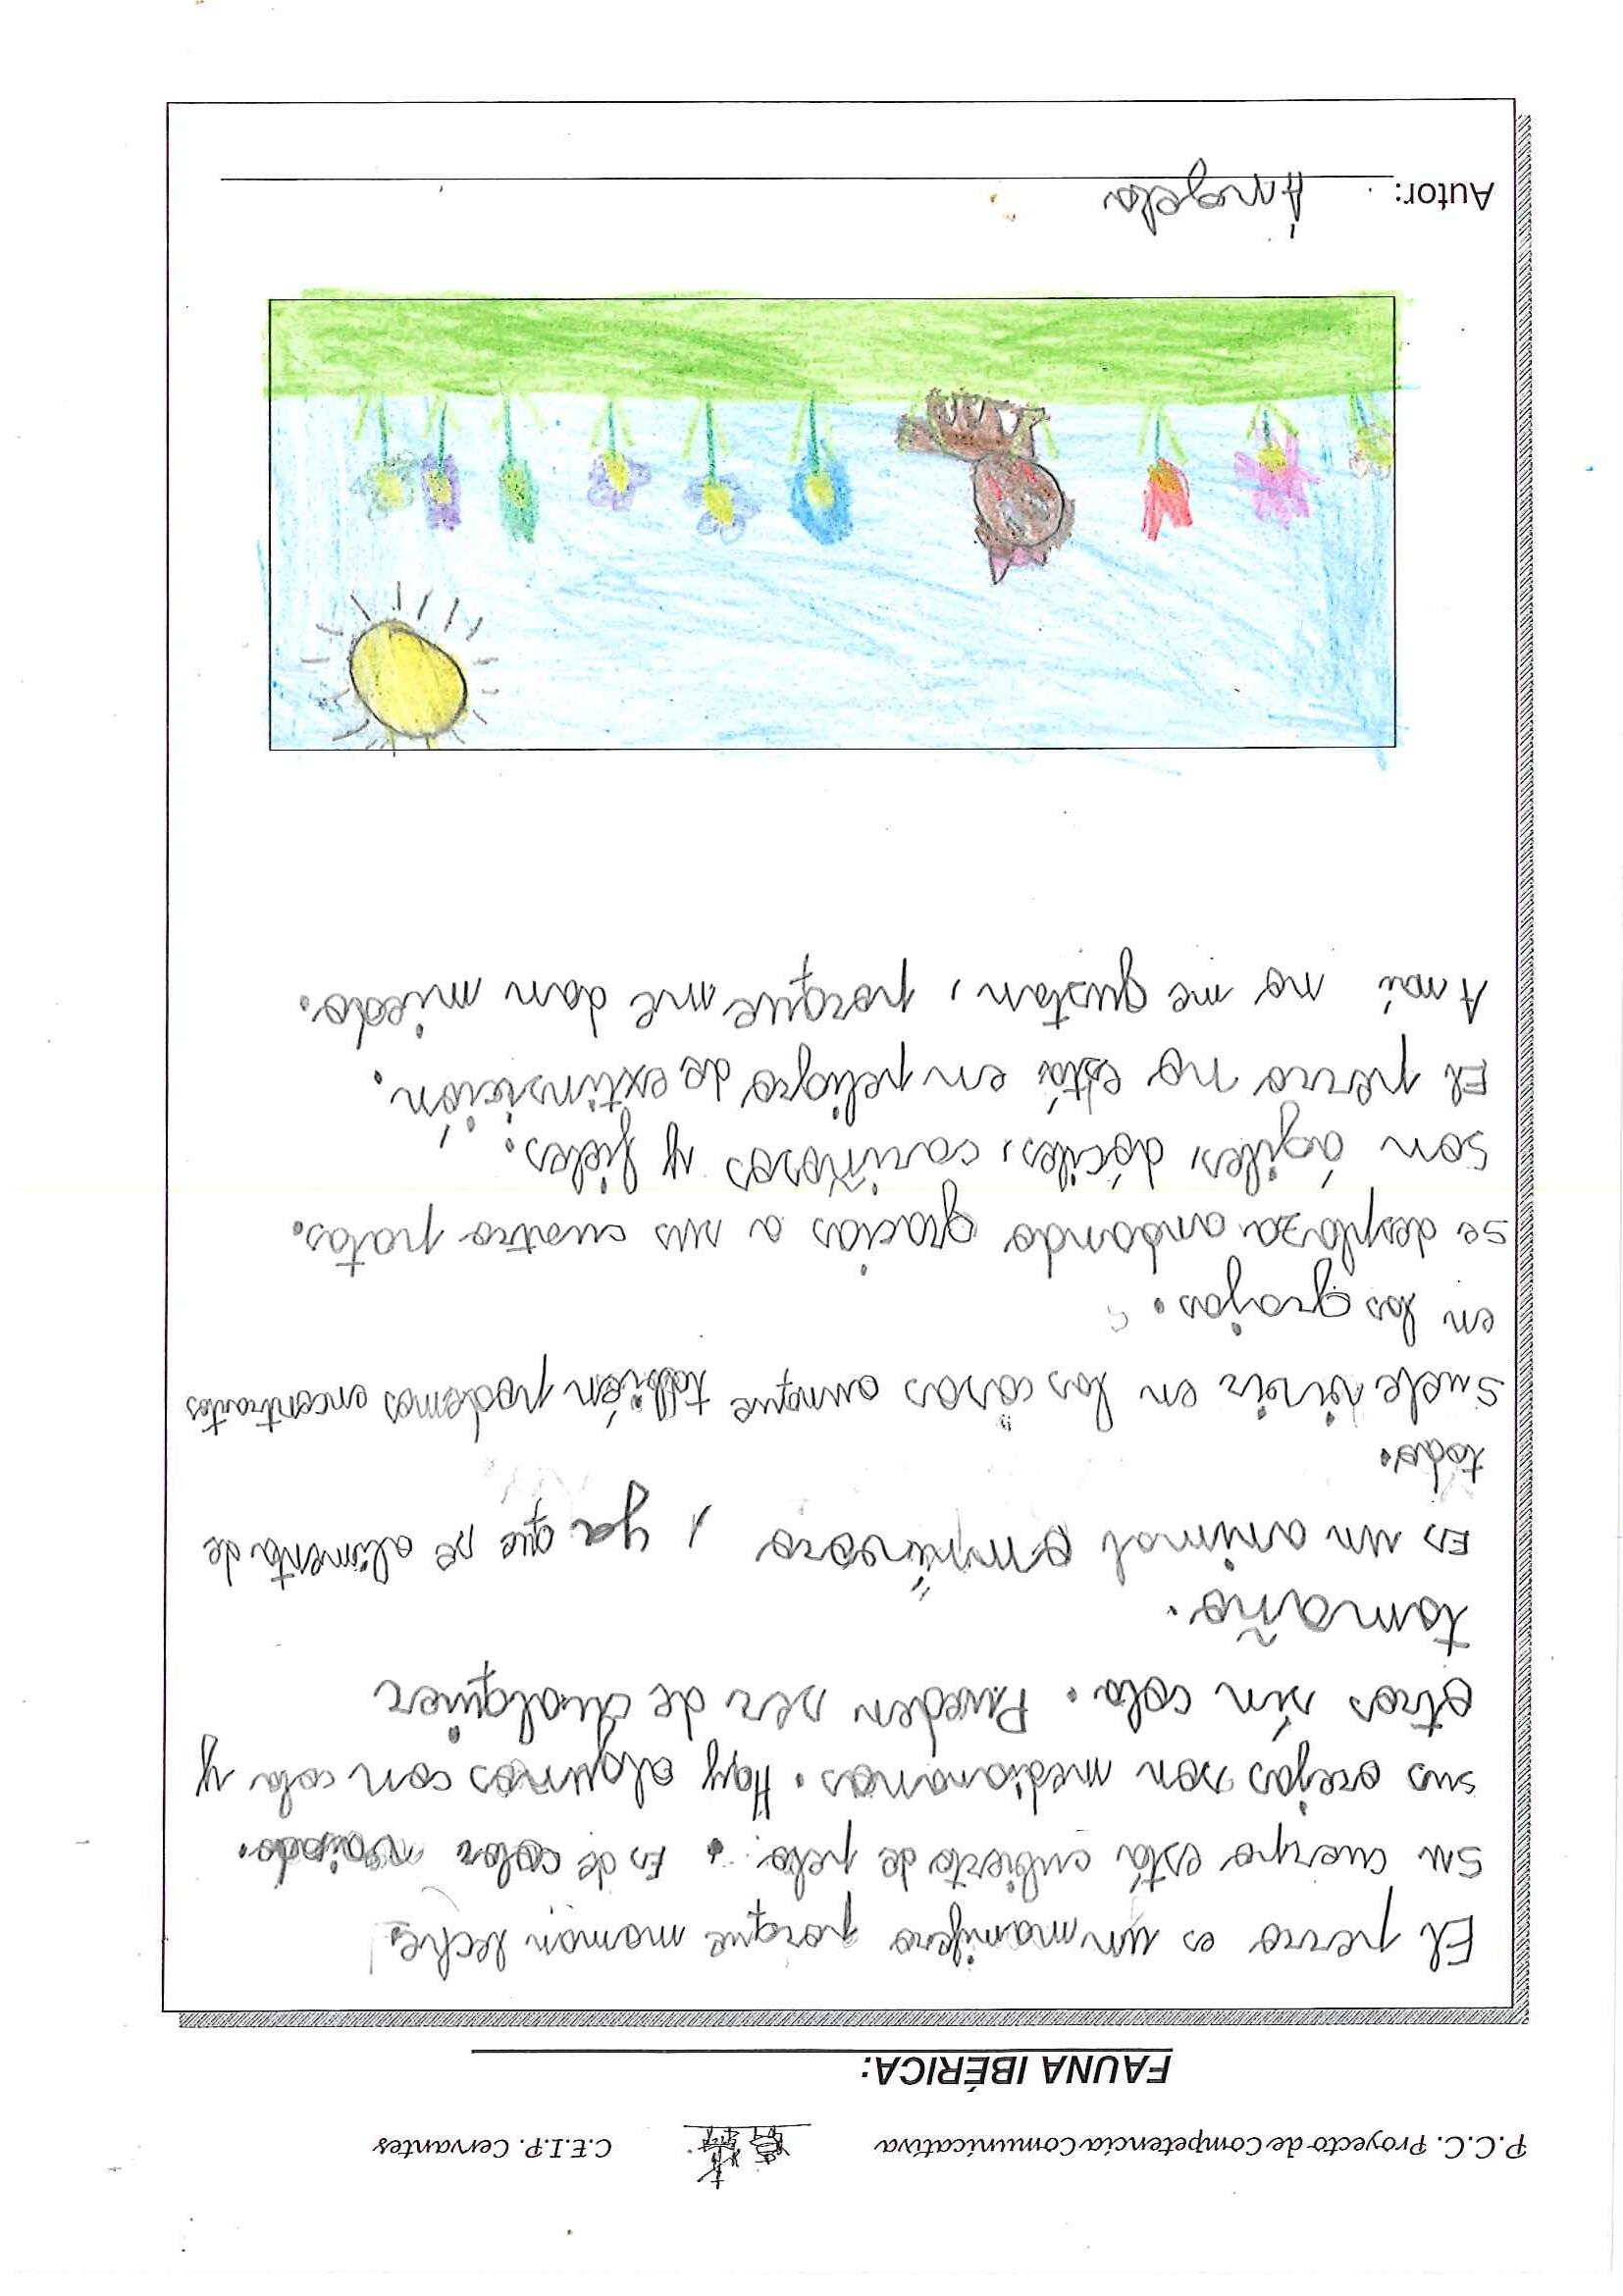 P.C.C. Proyecto de Competencia Comunicativa C.E.I.P. Cervantes
FAUNA IBÉRICA:
El perro es un mamífero porque maman leche.
Su cuerpo está cubierto de pelo. Es de color variado.
sus orejas son medianas. Hay algunos con cola y
otros sin cola. Pueden ser de cualquier
tamaño.
Es un animal omnívoro, ya que se alimenta de
todo.
Suele vivir en las casas aunque tabién podemos encontrarlos
en las grajas.
Se desplaza andando gracias a sus cuatro patas.
Son ágiles, dóciles, cariñosos y fieles.
El perro no está en peligro de extinsición.
A mí no me gustan, porque me dan miedo.
Autor: Ángela